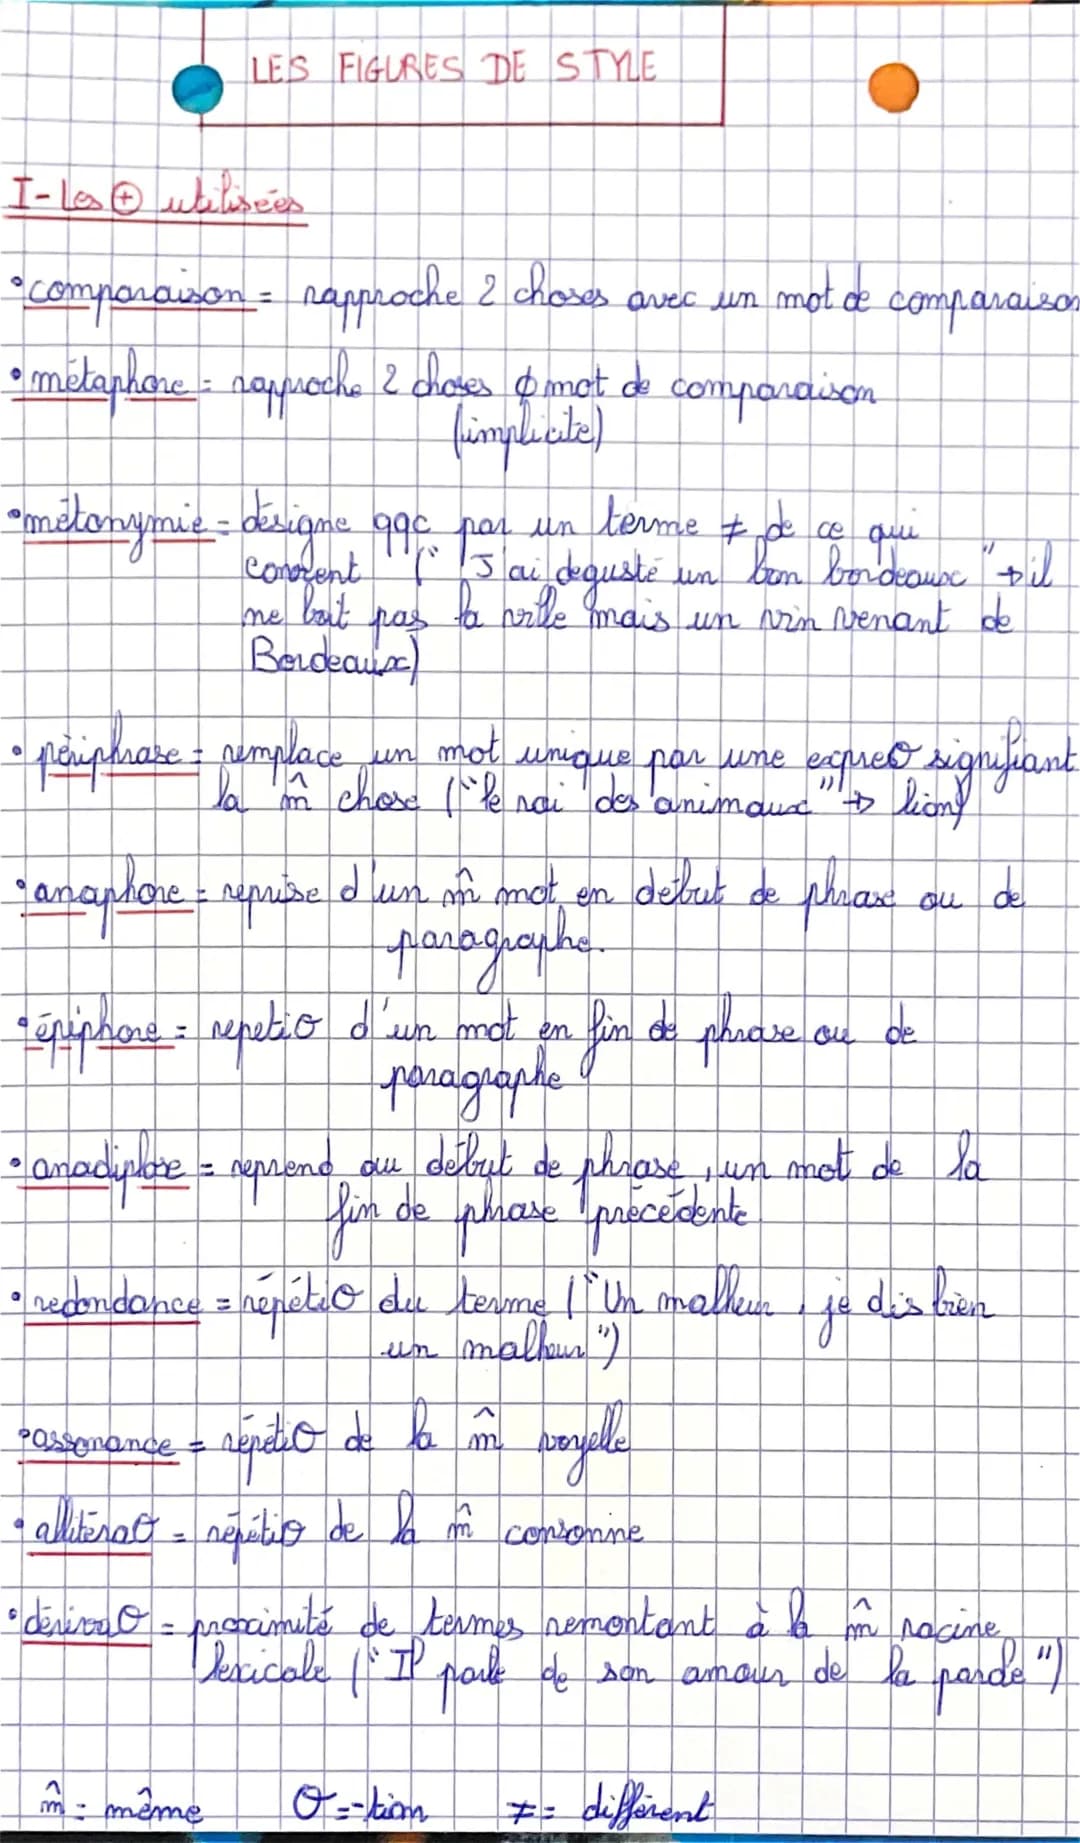 LES FIGURES DE STYLE
I- Les ⊕ utilisées
• comparaison = rapproche 2 choses avec un mot de comparaison
• métaphore = rapproche 2 choses ϕ mot de comparaison
(implicite)
• métonymie = désigne qqc par un terme ≠ de ce qui
convient ("J'ai degusté un bon bordeaux" → il
ne boit pas la ville mais un vin venant de
Bordeaux)
• périphrase = remplace un mot unique par une expresO signifiant
la m̂ chose ("le roi des animaux" → lion)
• anaphore = reprise d'un m̂ mot en début de phrase ou de
paragraphe.
• épiphore = repetiO d'un mot en fin de phrase ou de
paragraphe
• anadiplose = reprend au début de phrase, un mot de la
fin de phrase précédente
• redondance = répétiO du terme ("Un malheur, je dis bien
un malheur")
• assonance = répétiO de la m̂ voyelle
• allitéraO = répétiO de la m̂ consonne
• dérivaO = proximité de termes remontant à la m̂ racine
lexicale ("Il parle de son amour de la parole")
m̂ = même O = -tion ≠ = différent